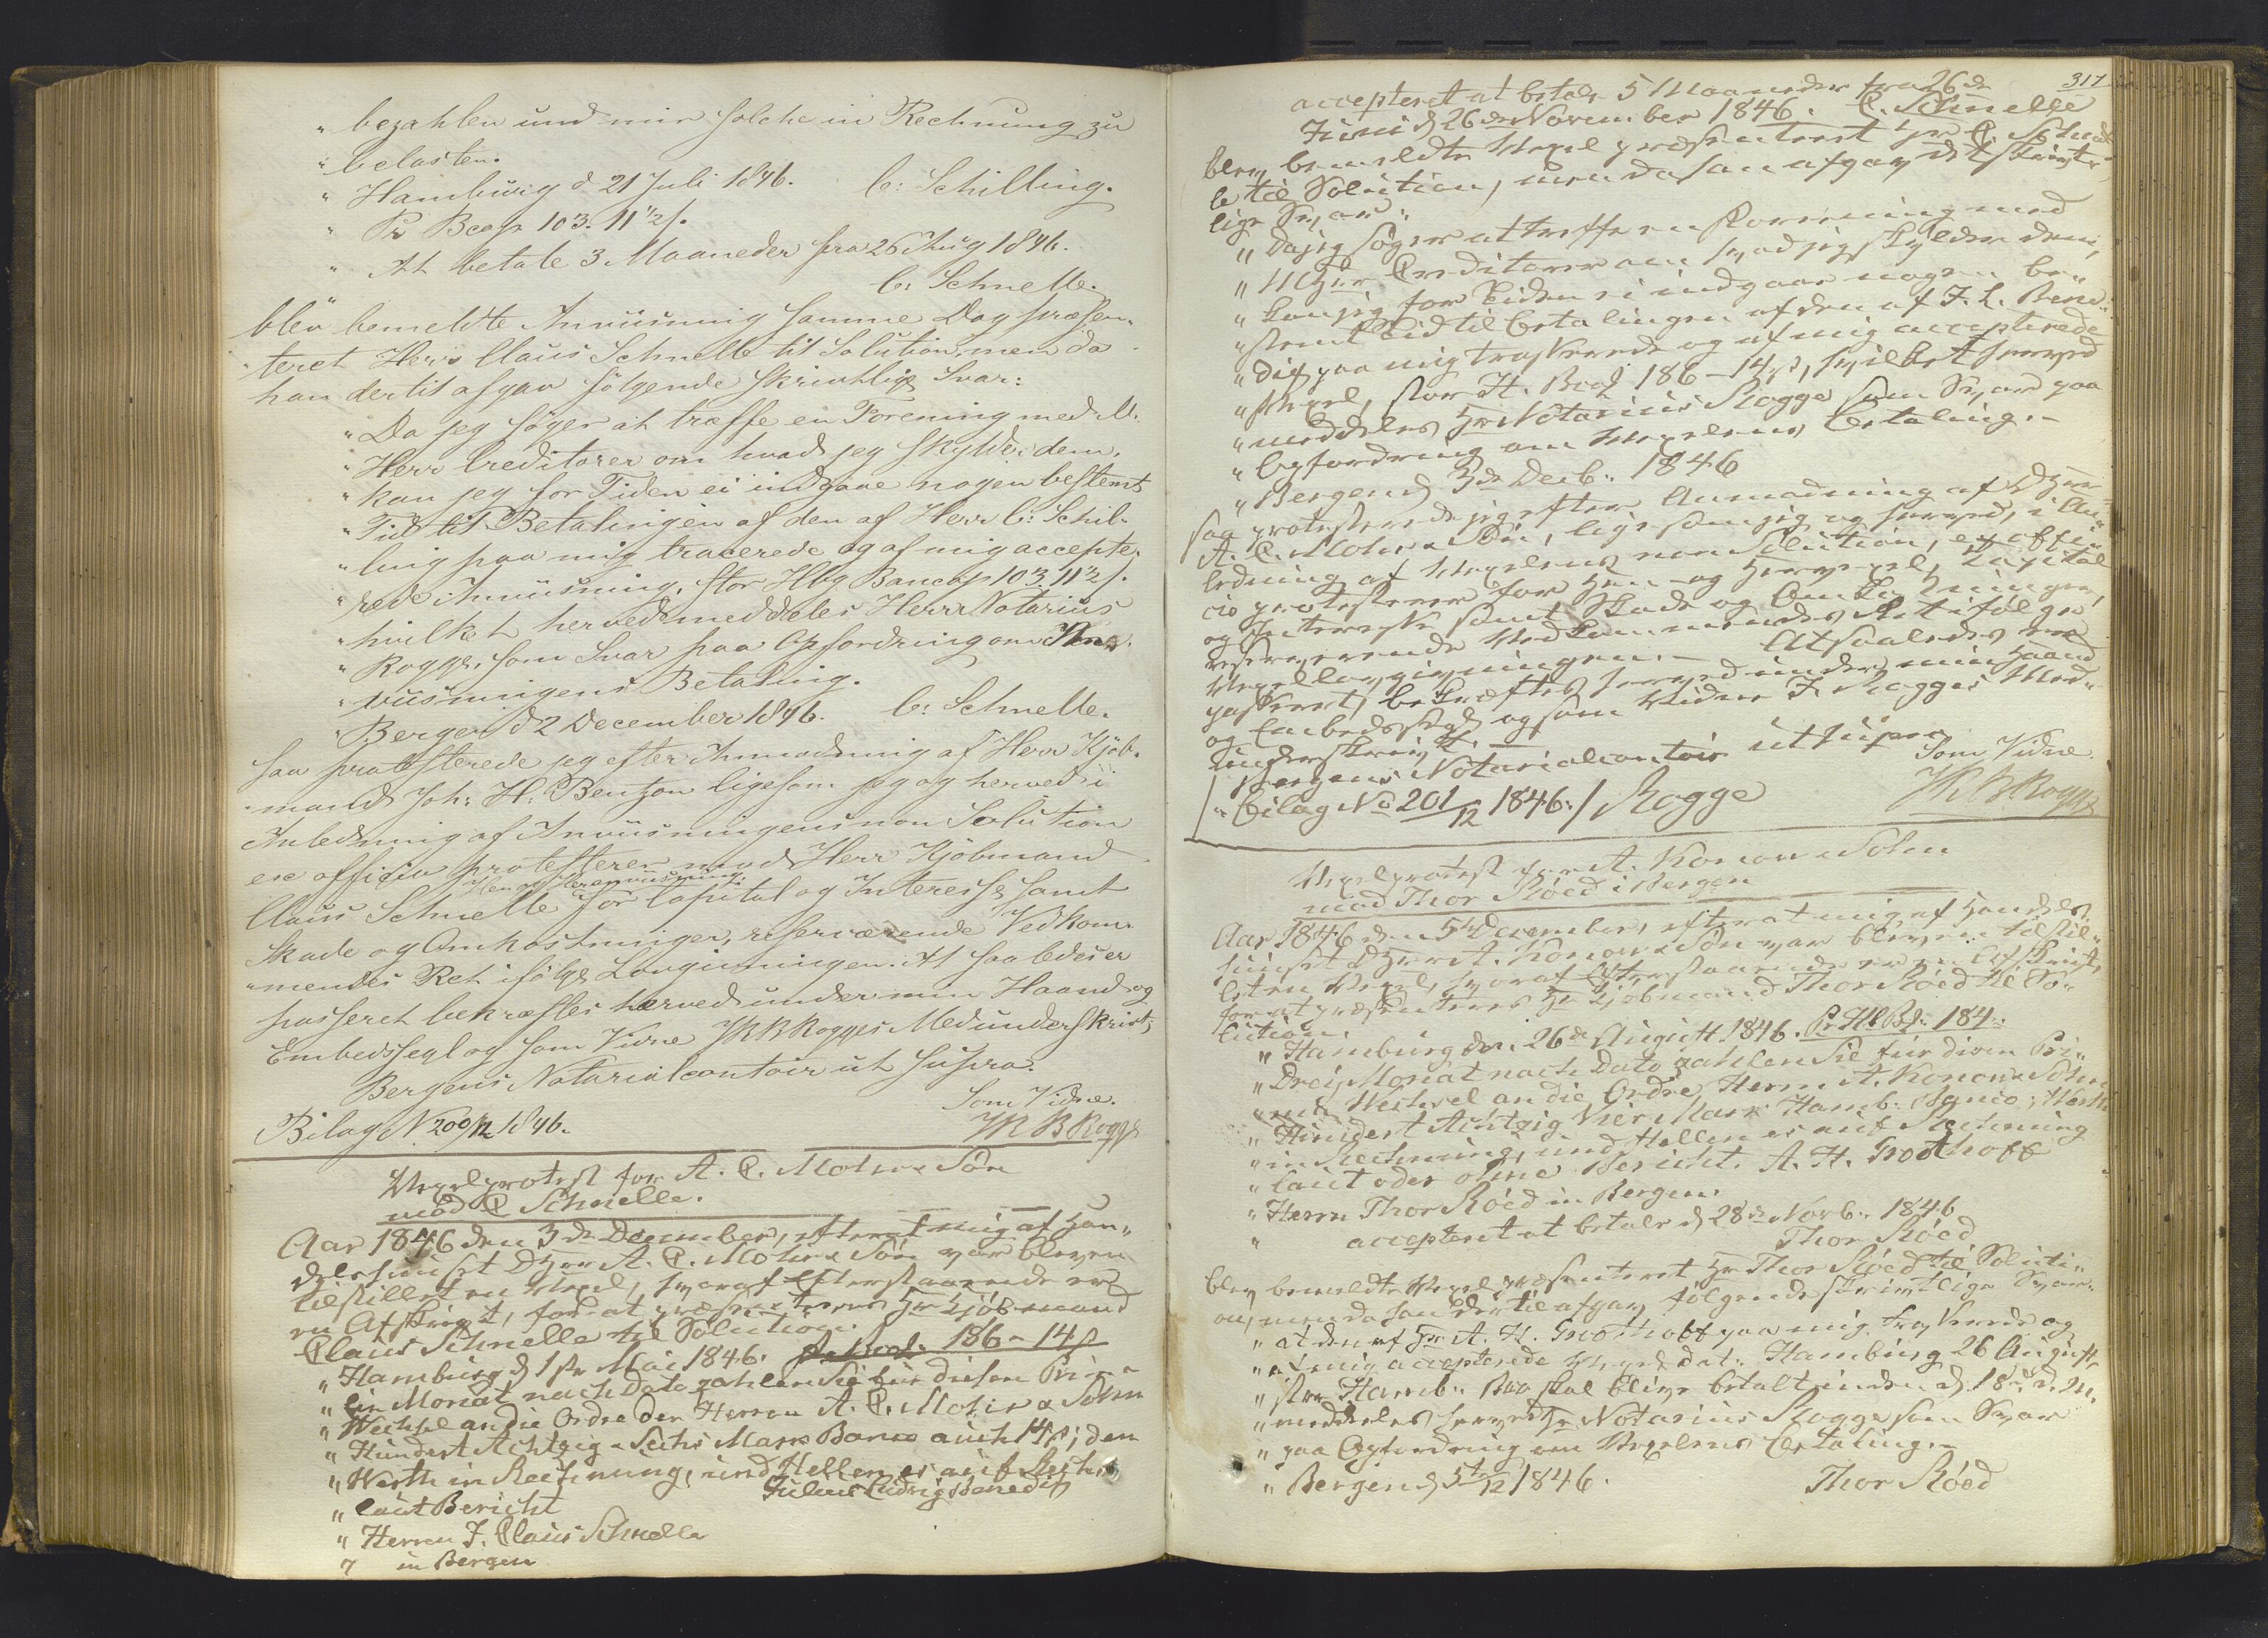 "bezahlen und mir solche in Rechnung zu
"belasten.
"Hamburg d 21 Juli 1846. C: Schilling.
"Pr Bco 103. 11½ ß.
"At betale 3 Maaneder fra 26 Aug 1846.
C: Schnelle.
blev bemeldte Anviisning samme Dag præsen-
teret Herr Claus Schnelle til Solution, men da
han dertil afgav følgende skrivtlige Svar:
"Da jeg søger at træffe en Forening med M.
"Herr Creditorer om hvad jeg skylder dem,
"kan jeg for Tiden ei indgaae nogen bestemt
"Tid til Betalingen af den af Herr C: Schil-
"ling paa mig tracerede og af mig accepte-
"rede Anviisning, stor Hbg Banco 103. 11½ ß.
"hvilket herved meddeles Herr Notarius
"Rogge, som Svar paa Opfordring om An-
"viisningens Betaling.
"Bergen d 2 December 1846. C: Schnelle.
saa protesterede jeg efter Anmodning af Herr Kjøb-
mand Joh: H. Bentzon ligesom jeg og herved i
Anledning af Anviisningens non Solution
ex officio protesterer mod Herr Kjøbmand
Hen og Heranviisning
Claus Schnelle for Capital og Interesse samt
Skade og Omkostninger, reserverende Vedkom-
mendes Ret ifølge Lovgivningen. At saaledes er
passeret bekræftes herved under min Haand og
Embedssegl og som Vidne J R B Rogges Medunderskrivt;
Bergens Notarialcontoir ut supra.
Som Vidne.
Bilag N 200/12 1846. J R B Rogge
Vexelprotest for A. C. Mohr & Søn
mod C Schnelle.
Aar 1846 den 3de December, efterat mig af Han-
delshuset DHrr A. C. Mohr & Søn var bleven
tilstillet en Vexel, hvoraf Efterstaaende er
en Afskrivt, for at præsenteres Hr Kjøbmand
Claus Schnelle til Solution.
"Hamburg d 1ste Mai 1846. Pr Bco 186 - 14 ß
"Ein Monat nach Dato zahlen Sie für diesen Prima
"Wechsel an die Ordre der Herren A. C. Mohr & Sohn
"Hundert Achtzig & Sechs Mark Banco auch 14 ß; den
"Werth in Rechnung, und stellen es auf Rechng
"laut Bericht Julius Ludvig Benedix
"Herren J. Claus Schnelle
" in Bergen
317
accepteret at betale 5 Maaneder fra 26de
Juni d 26de November 1846. C. Schnelle
blev bemeldte Vexel præsenteret Hr C. Schnel-
le til Solution, men da han afgav det skrivt-
lige Svar:
"Da jeg søger at træffe en Forening med
"M Hrr Creditorer om hvad jeg skylder dem,
"kan jeg for Tiden ei indgaae nogen be-
"stemt Tid til Betalingen af den af J. L. Bene-
"dix paa mig trasserede og af mig accepterede
"Vexel, stor H. Bco 186 - 14 ß, hvilket herved
"meddeles Hr Notarius Rogge som Svar paa
"Opfordring om Vexelens Betaling.-
"Bergen d 3de Decb: 1846
saa protesterede jeg efter Anmodning af DHrr
A. C. Mohr & Søn, ligesom jeg og herved, i An-
ledning af Vexelens non Solution, ex offi-
cio protesterer for Hen- og Hervexel, Kapital
og Interesse samt Skade og Omkostninger,
reserverende Vedkommendes Ret ifølge
Vexellovgivningen.- At saaledes er
passeret, bekræftes herved under min Haand
og Embedssegl og som Vidne J. Rogges Med-
underskrivt.-
Bergens Notarialcontoir ut supra
Som Vidne
/:Bilag No 201/12 1846:/ Rogge J R B Rogge
Vexelprotest for A. Konow & Sohn
mod Thor Röed i Bergen
Aar 1846 den 5te December, efterat mig af Handels-
huuset DHrr A. Konow & Søn var bleven tilstil-
let en Vexel, hvoraf Efterstaaende er en Afskrivt,
for at præsenteres Hr Kjøbmand Thor Röed til So-
lution.
"Hamburg den 26de August 1846. Pr Hb Bco: 184.-
"Drey Monat nach Dato zahlen Sie für diesen Pri-
"ma Wechsel an die Ordre Herrn A. Konow & Sohn
"Hundert Achtzig Vier Mark Hamb: Banco; Werth
"in Rechnung, und stellen es auf Rechnung
"laut oder ohne Bericht. A. H. Groothoff
"Herrn Thor Röed in Bergen.
" accepteret at betale d 28de Novb: 1846
Thor Röed
blev bemeldte Vexel præsenteret Hr Thor Röed til Soluti-
on, men da han dertil afgav følgende skrivtlige Svar:
"at den af Hr A. H. Groothoff paa mig trasserede og
"af mig accepterede Vexel dat: Hamburg 26 August,
"stor Hamb: Bco skal blive betalt inden d 18de d. M.
"meddeles herved Hr Notarius Rogge som Svar
"paa Opfordring om Vexelens Betaling.-
"Bergen d 5te/12 1846. Thor Röed